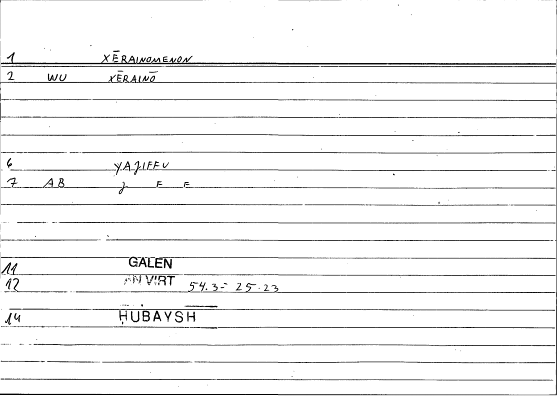 1 XĒRAINOMENON
2 WU XĒRAINŌ
6 YAJIFFU
7 AB J F F
11 GALEN
12 AN VIRT 54.3- 25.23
14 ḤUBAYSH